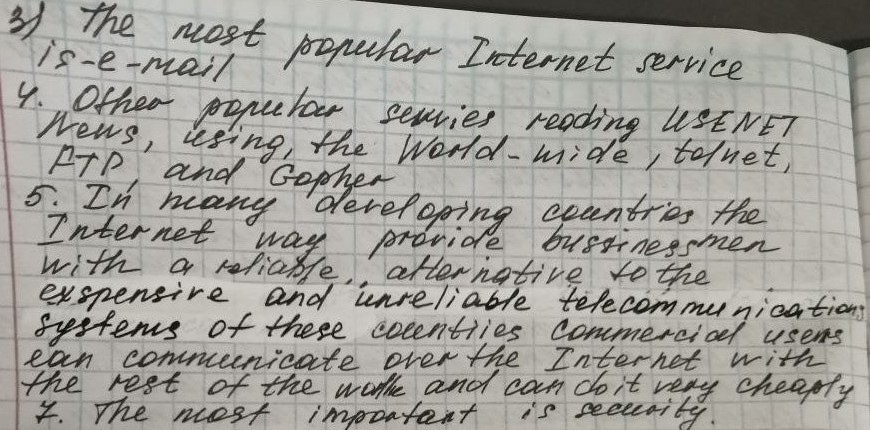 3) The most popular Internet service
is-e-mail
4. Other popular servies reading USENET
News, using, the World-wide, telnet,
FTP, and Gopher
5. In many developing countries the
Internet way provide bussinessmen
with a reliable.. alternative to the
exspensive and unreliable telecommunications
systems of these countiies commercial users
can communicate over the Internet with
the rest of the and can do it very cheaply
7. The most important is security.